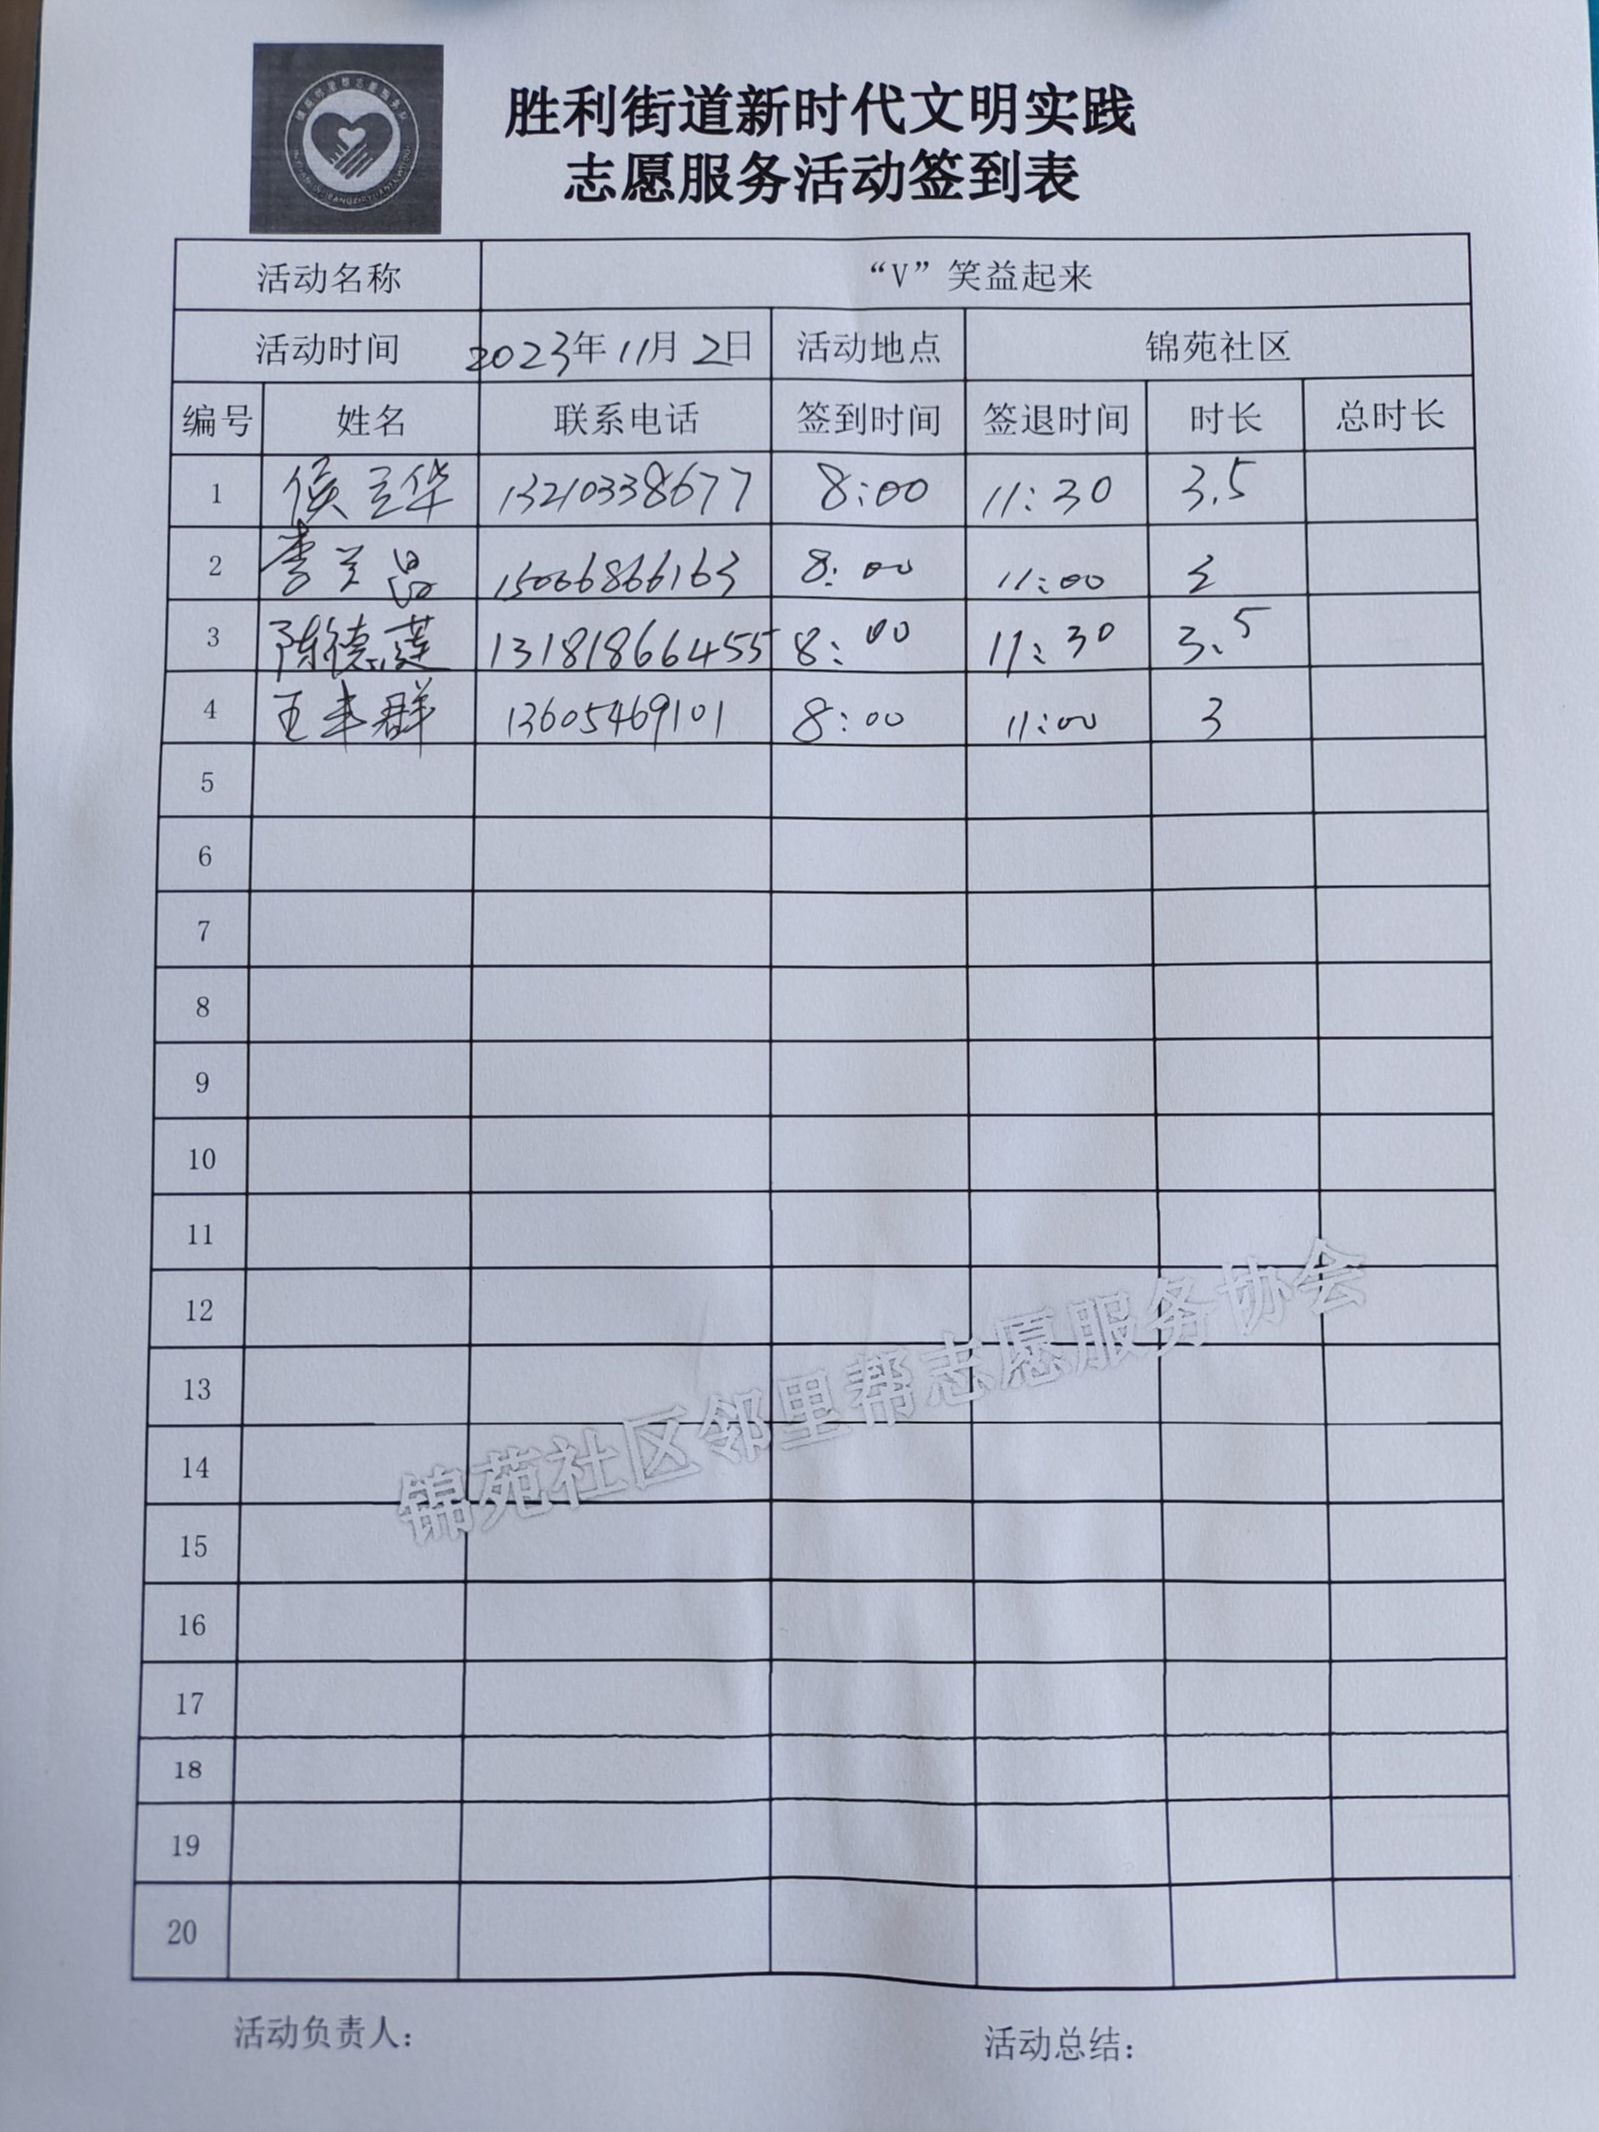 胜利街道新时代文明实践
志愿服务活动签到表
活动名称 “V”笑益起来
活动时间 2023年11月2日 活动地点 锦苑社区
编号 姓名 联系电话 签到时间 签退时间 时长 总时长
1 侯兰华 13210338677 8:00 11:30 3.5
2 李兰昌 15066866163 8:00 11:00 3
3 陈德莲 13181866455 8:00 11:30 3.5
4 王丰群 13605469101 8:00 11:00 3
5
6
7
8
9
10
11
12
13
14
15
16
17
18
19
20
锦苑社区邻里帮志愿服务协会
活动负责人: 活动总结: